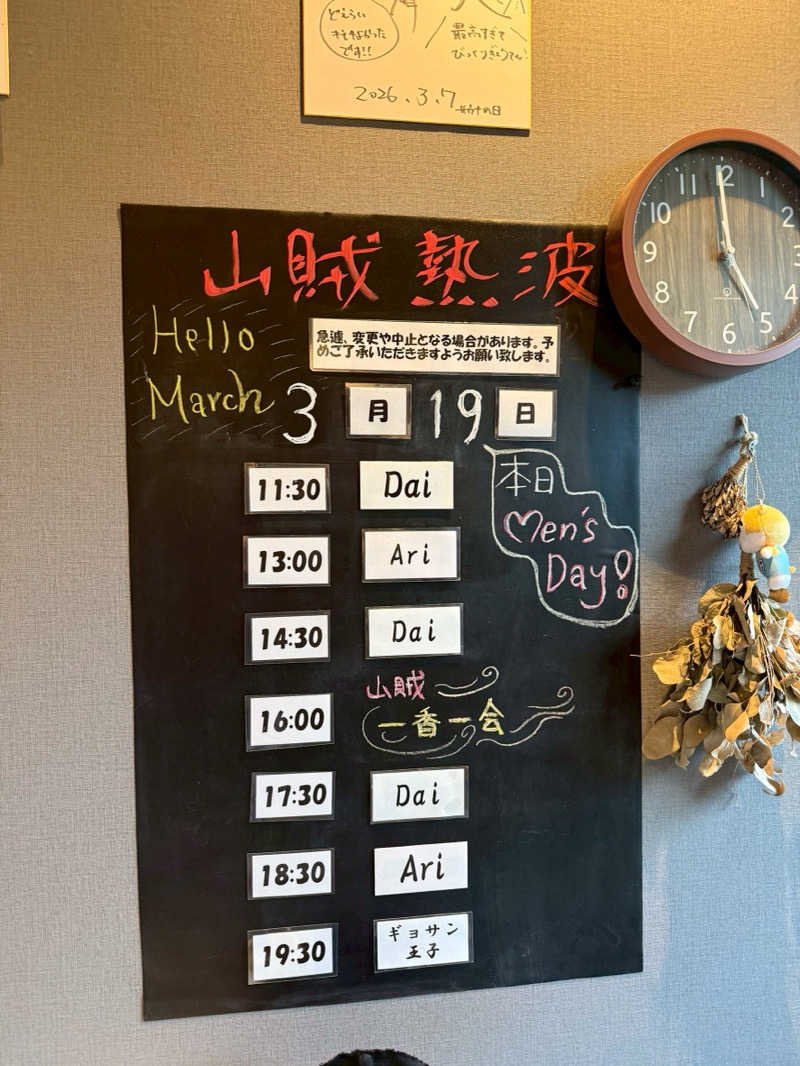 どえらい
キモチよかった
です!!
最高すぎて
びっくりぎょうてん!
2026.3.7
山賊 熱波
Hello
March
急遽、変更や中止となる場合があります。予
めご了承いただきますようお願い致します。
3月19日
本日
Men's
Day!
11:30 Dai
13:00 Ari
14:30 Dai
16:00 山賊
一香一会
17:30 Dai
18:30 Ari
19:30 ギョサン
王子
12
1
2
3
4
5
6
7
8
9
10
11